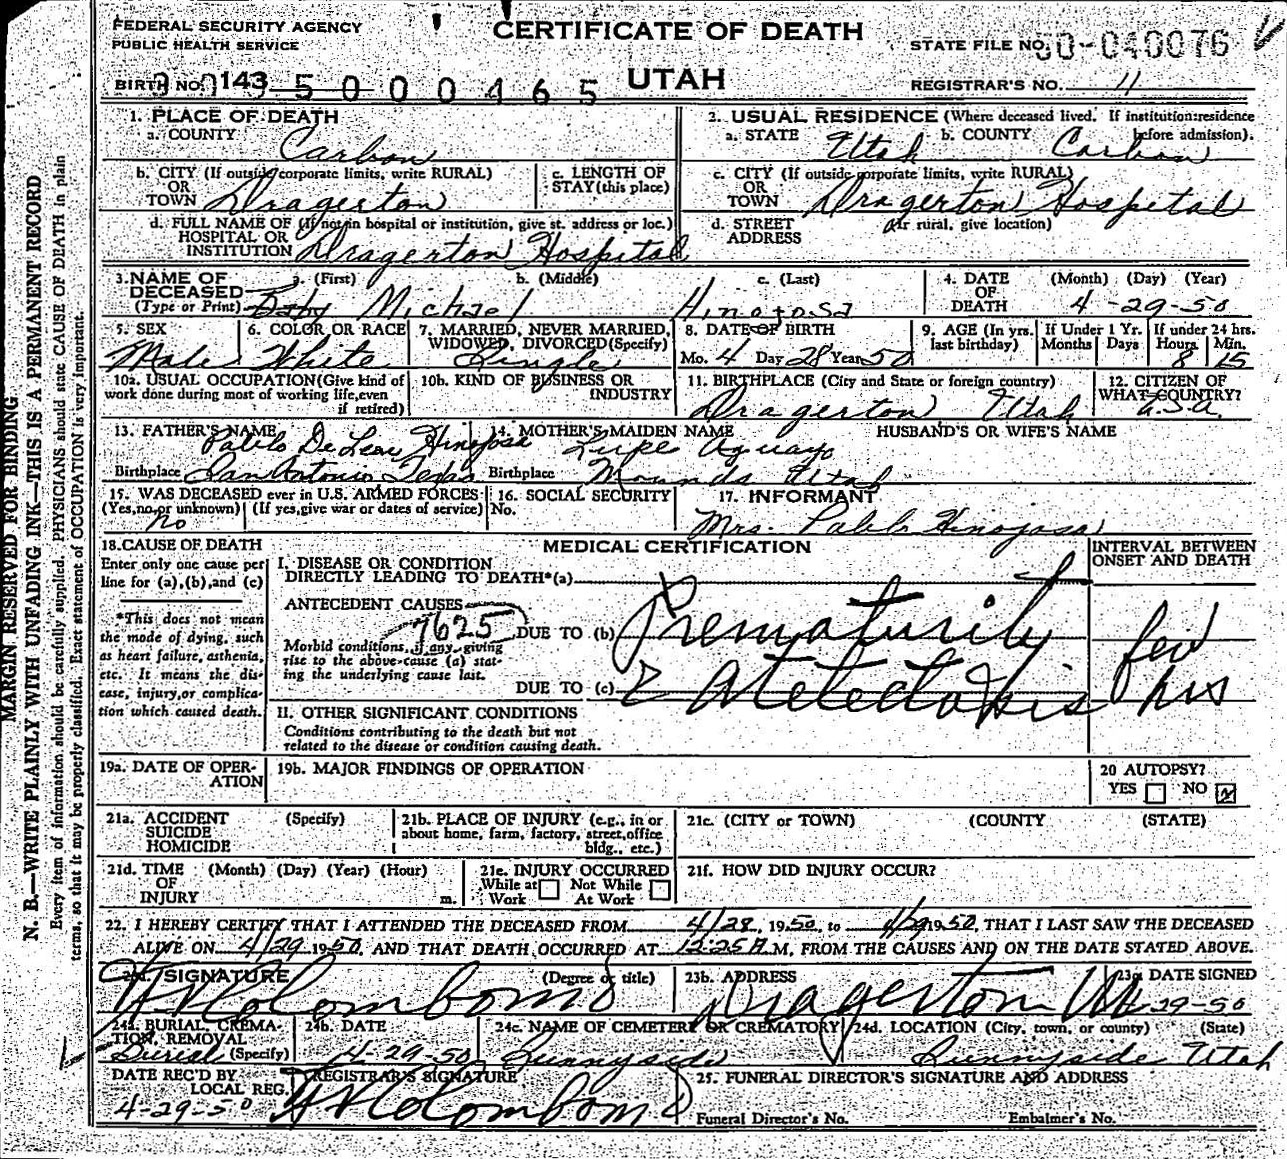 FEDERAL SECURITY AGENCY
PUBLIC HEALTH SERVICE
CERTIFICATE OF DEATH
UTAH
STATE FILE NO. 50-040076
BIRTH NO. 143 5000465
REGISTRAR'S NO. 11
1. PLACE OF DEATH
a. COUNTY Carbon
2. USUAL RESIDENCE (Where deceased lived. If institution: residence before admission).
a. STATE Utah b. COUNTY Carbon
b. CITY (If outside corporate limits, write RURAL) OR TOWN Dragerton
c. LENGTH OF STAY (this place)
c. CITY (If outside corporate limits, write RURAL) OR TOWN Dragerton Hospital
d. FULL NAME OF (If not in hospital or institution, give st. address or loc.) HOSPITAL OR INSTITUTION Dragerton Hospital
d. STREET ADDRESS (If rural, give location)
3. NAME OF DECEASED (Type or Print) a. (First) b. (Middle) c. (Last)
Baby Michael Hinojosa
4. DATE OF DEATH (Month) (Day) (Year)
4-29-50
5. SEX Male
6. COLOR OR RACE White
7. MARRIED, NEVER MARRIED, WIDOWED, DIVORCED (Specify) Single
8. DATE OF BIRTH Mo. 4 Day 28 Year 50
9. AGE (In yrs. last birthday)
If Under 1 Yr. Months Days
If under 24 hrs. Hours Min.
8 15
10a. USUAL OCCUPATION (Give kind of work done during most of working life, even if retired)
10b. KIND OF BUSINESS OR INDUSTRY
11. BIRTHPLACE (City and State or foreign country)
Dragerton Utah
12. CITIZEN OF WHAT COUNTRY?
U.S.A.
13. FATHER'S NAME Pablo De Leon Hinojosa
Birthplace San Antonio Texas
14. MOTHER'S MAIDEN NAME Lupe Aguayo
Birthplace Mounds Utah
HUSBAND'S OR WIFE'S NAME
15. WAS DECEASED ever in U.S. ARMED FORCES
(Yes, no, or unknown) (If yes, give war or dates of service)
No
16. SOCIAL SECURITY No.
17. INFORMANT
Mrs. Pablo Hinojosa
18. CAUSE OF DEATH
Enter only one cause per line for (a), (b), and (c)
*This does not mean the mode of dying, such as heart failure, asthenia, etc. It means the disease, injury, or complication which caused death.
MEDICAL CERTIFICATION
INTERVAL BETWEEN ONSET AND DEATH
I. DISEASE OR CONDITION DIRECTLY LEADING TO DEATH*(a)
ANTECEDENT CAUSES
7625
Morbid conditions, if any, giving rise to the above cause (a) stating the underlying cause last.
DUE TO (b) Prematurity
DUE TO (c) & Atelectasis
few hrs
II. OTHER SIGNIFICANT CONDITIONS
Conditions contributing to the death but not related to the disease or condition causing death.
19a. DATE OF OPERATION
19b. MAJOR FINDINGS OF OPERATION
20 AUTOPSY?
YES NO
21a. ACCIDENT SUICIDE HOMICIDE (Specify)
21b. PLACE OF INJURY (e.g., in or about home, farm, factory, street, office bldg., etc.)
21c. (CITY or TOWN) (COUNTY (STATE)
21d. TIME OF INJURY (Month) (Day) (Year) (Hour) m.
21e. INJURY OCCURRED
While at Work Not While At Work
21f. HOW DID INJURY OCCUR?
22. I HEREBY CERTIFY THAT I ATTENDED THE DECEASED FROM 4/28, 1950, to 4/29 1950, THAT I LAST SAW THE DECEASED
ALIVE ON 4/29 1950, AND THAT DEATH OCCURRED AT 12:25 A.M, FROM THE CAUSES AND ON THE DATE STATED ABOVE.
23a. SIGNATURE (Degree or title)
A V Colombo MD
23b. ADDRESS
Dragerton Ut
23c. DATE SIGNED
4-29-50
24a. BURIAL, CREMATION, REMOVAL (Specify) Burial
24b. DATE 4-29-50
24c. NAME OF CEMETERY OR CREMATORY Sunnyside
24d. LOCATION (City, town, or county) (State)
Sunnyside Utah
DATE REC'D BY LOCAL REG.
4-29-50
REGISTRAR'S SIGNATURE
A V Colombo MD
25. FUNERAL DIRECTOR'S SIGNATURE AND ADDRESS
Funeral Director's No. Embalmer's No.
MARGIN RESERVED FOR BINDING
N. B.—WRITE PLAINLY WITH UNFADING INK—THIS IS A PERMANENT RECORD
Every item of information should be carefully supplied. PHYSICIANS should state CAUSE OF DEATH in plain
terms, so that it may be properly classified. Exact statement of OCCUPATION is very important.